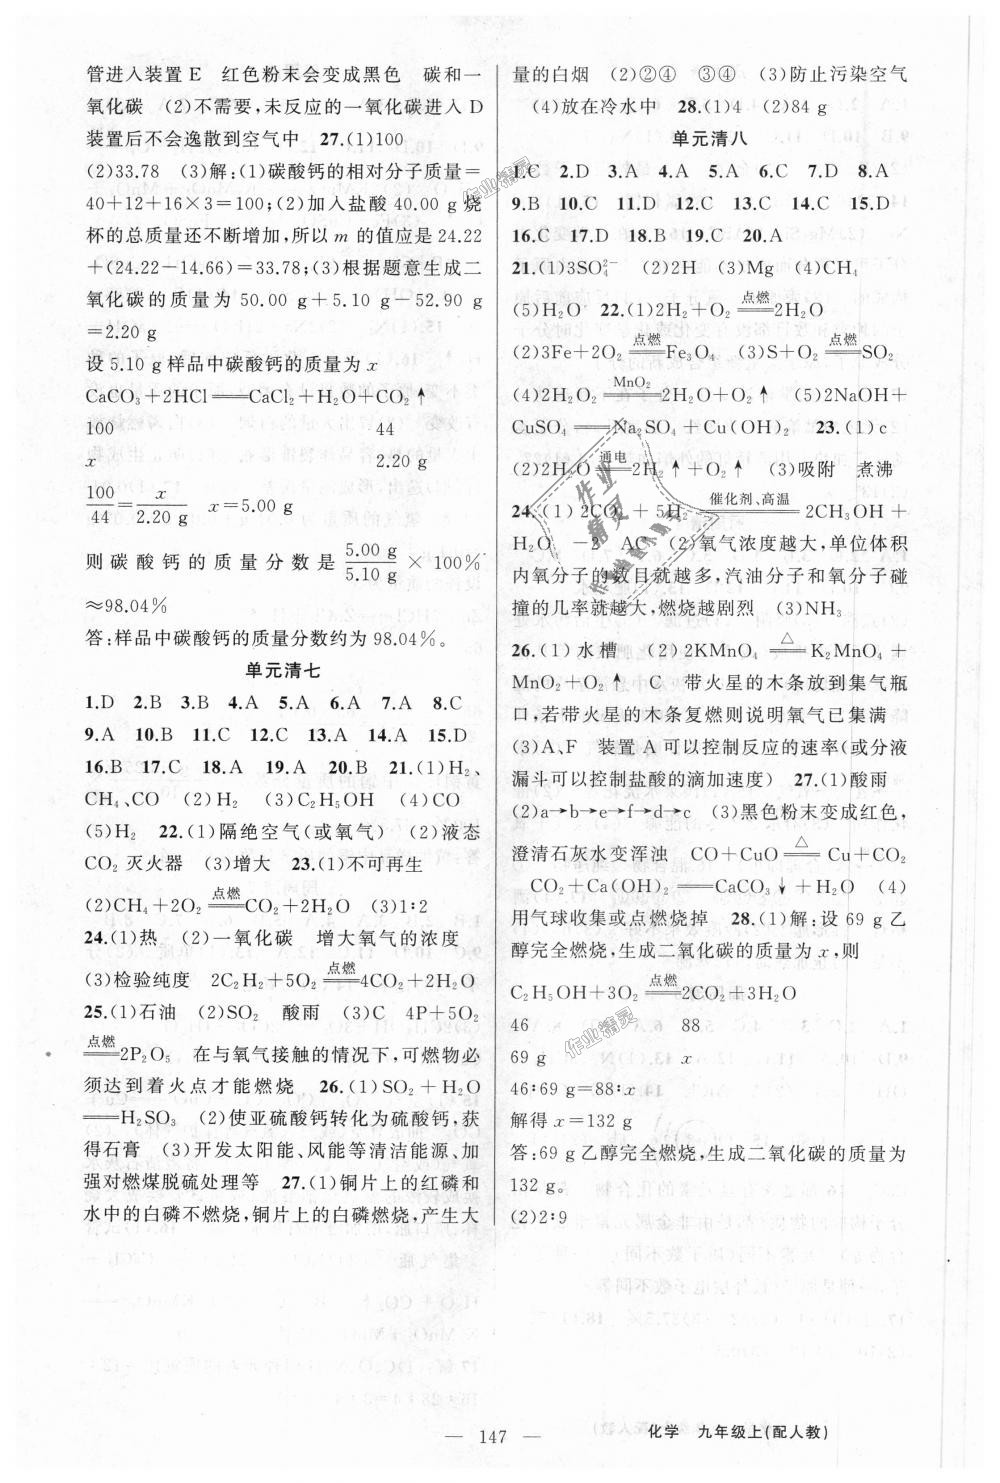 管进入装置E 红色粉末会变成黑色 碳和一
氧化碳 (2)不需要,未反应的一氧化碳进入D
装置后不会逸散到空气中 27.(1)100
(2)33.78 (3)解:(1)碳酸钙的相对分子质量=
40+12+16×3=100;(2)加入盐酸40.00 g烧
杯的总质量还不断增加,所以m的值应是24.22
+(24.22-14.66)=33.78;(3)根据题意生成二
氧化碳的质量为50.00 g+5.10 g-52.90 g
=2.20 g
设5.10 g样品中碳酸钙的质量为x
CaCO₃+2HCl══CaCl₂+H₂O+CO₂↑
100 44
x 2.20 g
100/44=x/2.20 g x=5.00 g
则碳酸钙的质量分数是5.00 g/5.10 g×100%
≈98.04%
答:样品中碳酸钙的质量分数约为98.04%。
单元清七
1.D 2.B 3.B 4.A 5.A 6.A 7.A 8.C
9.A 10.B 11.C 12.C 13.A 14.A 15.D
16.B 17.C 18.A 19.A 20.B 21.(1)H₂、
CH₄、CO (2)H₂ (3)C₂H₅OH (4)CO
(5)H₂ 22.(1)隔绝空气(或氧气) (2)液态
CO₂灭火器 (3)增大 23.(1)不可再生
(2)CH₄+2O₂═点燃═CO₂+2H₂O (3)1∶2
24.(1)热 (2)一氧化碳 增大氧气的浓度
(3)检验纯度 2C₂H₂+5O₂═点燃═4CO₂+2H₂O
25.(1)石油 (2)SO₂ 酸雨 (3)C 4P+5O₂
═点燃═2P₂O₅ 在与氧气接触的情况下,可燃物必
须达到着火点才能燃烧 26.(1)SO₂+H₂O
══H₂SO₃ (2)使亚硫酸钙转化为硫酸钙,获
得石膏 (3)开发太阳能、风能等清洁能源、加
强对燃煤脱硫处理等 27.(1)铜片上的红磷和
水中的白磷不燃烧,铜片上的白磷燃烧,产生大
量的白烟 (2)②④ ③④ (3)防止污染空气
(4)放在冷水中 28.(1)4 (2)84 g
单元清八
1.C 2.D 3.A 4.A 5.A 6.C 7.D 8.A
9.B 10.C 11.D 12.C 13.C 14.C 15.D
16.C 17.D 18.B 19.C 20.A
21.(1)3SO₄²⁻ (2)2H (3)Mg (4)CH₄
(5)H₂O 22.(1)2H₂+O₂═点燃═2H₂O
(2)3Fe+2O₂═点燃═Fe₃O₄ (3)S+O₂═点燃═SO₂
(4)2H₂O₂═MnO₂═2H₂O+O₂↑ (5)2NaOH+
CuSO₄══Na₂SO₄+Cu(OH)₂ 23.(1)c
(2)2H₂O═通电═2H₂↑+O₂↑ (3)吸附 煮沸
24.(1)2CO₂+5H₂═催化剂、高温═2CH₃OH+
H₂O -2 AC (2)氧气浓度越大,单位体积
内氧分子的数目就越多,汽油分子和氧分子碰
撞的几率就越大,燃烧越剧烈 (3)NH₃
26.(1)水槽 (2)2KMnO₄═△═K₂MnO₄+
MnO₂+O₂↑ C 带火星的木条放到集气瓶
口,若带火星的木条复燃则说明氧气已集满
(3)A、F 装置A可以控制反应的速率(或分液
漏斗可以控制盐酸的滴加速度) 27.(1)酸雨
(2)a→b→e→f→d→c (3)黑色粉末变成红色,
澄清石灰水变浑浊 CO+CuO═△═Cu+CO₂
CO₂+Ca(OH)₂══CaCO₃↓+H₂O (4)
用气球收集或点燃烧掉 28.(1)解:设69 g乙
醇完全燃烧,生成二氧化碳的质量为x,则
C₂H₅OH+3O₂═点燃═2CO₂+3H₂O
46 88
69 g x
46∶69 g=88∶x
解得x=132 g
答:69 g乙醇完全燃烧,生成二氧化碳的质量为
132 g。
(2)2∶9
作业精灵
作业精灵
作业精灵
— 147 — 化学 九年级上(配人教)